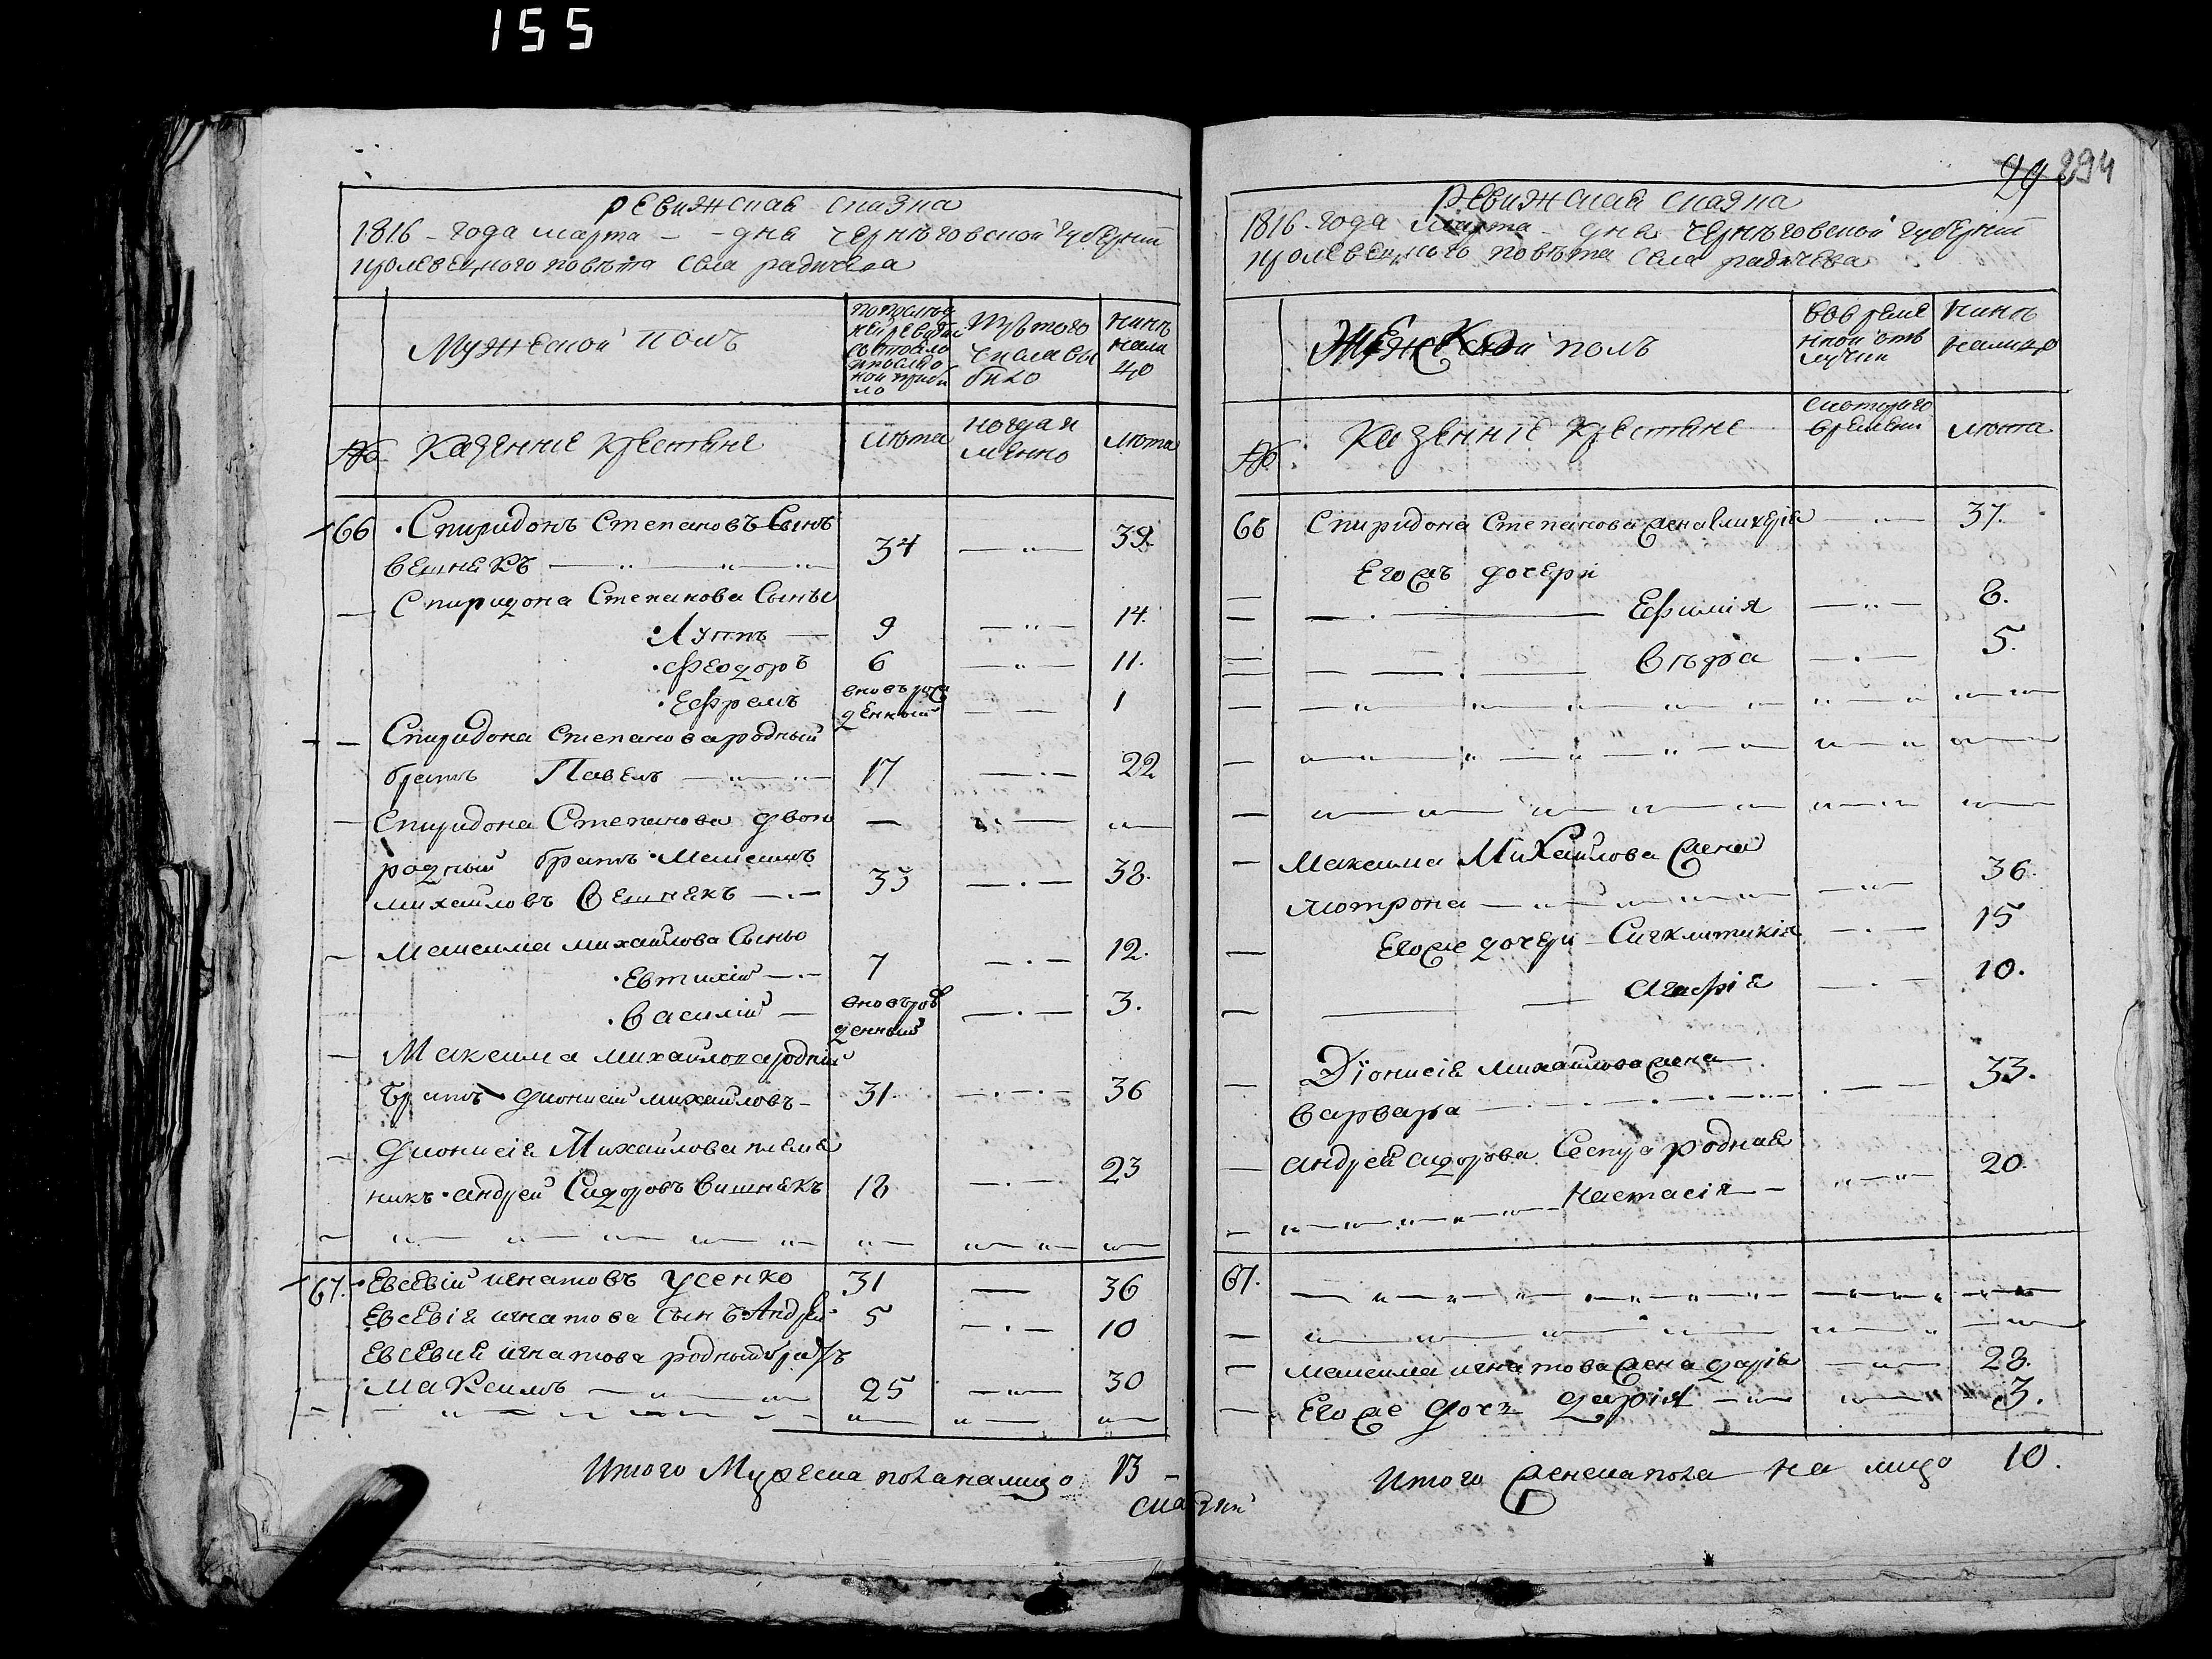 155
29 294
ревижская сказка
1816 - года марта - - дня Черниговской Губернии
кролевецкого повѣта села радичева
Мужеской полъ
по послѣд
ней ревизии
состояло
и после о
ной прибы
ло
Изъ того
числа вы
было
нынѣ
нали
цо
№ Казенние крестяне
лѣта
когда и
менно
лѣта
66 Спиридонъ Степановъ Сынъ
Вешнякъ 34 39.
Спиридона Степанова Сыны
Луппъ 9 14.
Феодоръ 6 11.
Ефремъ вновърож
денный 1
Спиридона Степанова родный
братъ Павелъ 17 22
Спиридона Степанова двою
родный братъ Максимъ
михайловъ Вешнякъ 33 38.
Максима михайлова Сыны
Евтихій 7 12.
Василій вновърож
денный 3.
Максима михайлова родный
братъ дионисий михайловъ 31. 36
Дионисія Михайлова племя
никъ андрей Сидоровъ Вишнякъ 18 23
67. Евсевій игнатовъ Усенко 31 36
Евсевія игнатова Сынъ Андрей 5 10
Евсевия игнатова родный братъ
Максимъ 25 30
Итого Мужеска пола на лицо 13
сказки
ревижская сказка
1816 - года Марта - дня Черниговской губернии
кролевецкого повѣта Села радичева
Женской полъ
во време
нной отъ
лучки
нынѣ
налицо
№ Казенние Крестяне
с котораго
времени
лѣта
66 Спиридона Степанова жена Гликерія 37.
Его жъ дочери
Ефимія 8.
Вѣра 5.
Максима Михайлова жена
мотрона 36.
Его же дочери Сигклитикія 15
Агафія 10.
Діонисія Михайлова жена
Варвара 33.
андрея сидорова Сестра родная
Настасія 20.
67.
максима игнатова жена дарія 28.
Его же дочь дарія 3.
Итого женска пола на лицо 10.